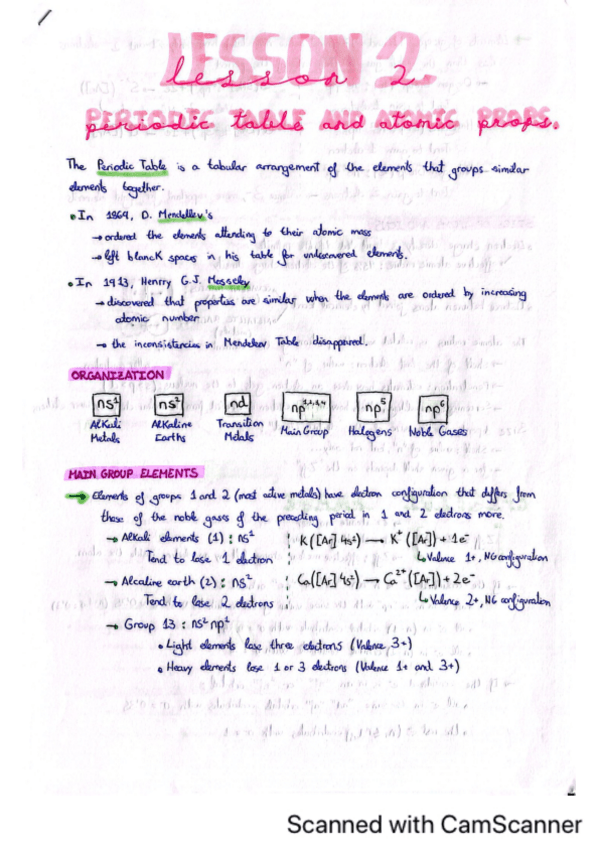 LESSON 2
lesson 2
PERIODIC TABLE AND ATOMIC PROPS.
periodic table and atomic props.
The Periodic Table is a tabular arrangement of the elements that groups similar
elements together.
• In 1869, D. Mendeleev's
→ ordered the elements attending to their atomic mass
→ left blancK spaces in his table for undiscovered elements.
• In 1913, Henrry G.J. Moseley
→ discovered that properties are similar when the elements are ordered by increasing
atomic number
→ the inconsistencias in Mendeleev Table disappeared.
ORGANIZATION
ns¹ ns² nd np¹,²,³,⁴ np⁵ np⁶
Alkali Alkaline Transition Main Group Halogens Noble Gases
Metals Earths Metals
MAIN GROUP ELEMENTS
→ Elements of groups 1 and 2 (most active metals) have electron configuration that differs from
those of the noble gases of the preceding period in 1 and 2 electrons more.
→ Alkali elements (1) : ns¹ K ([Ar] 4s¹) → K⁺ ([Ar]) + 1e⁻
Tend to lose 1 electron ↳ Valence 1+, NG configuration
→ Alcaline earth (2) : ns² Ca ([Ar] 4s²) → Ca²⁺ ([Ar]) + 2e⁻
Tend to lose 2 electrons ↳ Valence 2+, NG configuration
→ Group 13 : ns² np¹
• Light elements lose three electrons (Valence 3+)
• Heavy elements lose 1 or 3 electrons (Valence 1+ and 3+)
Scanned with CamScanner